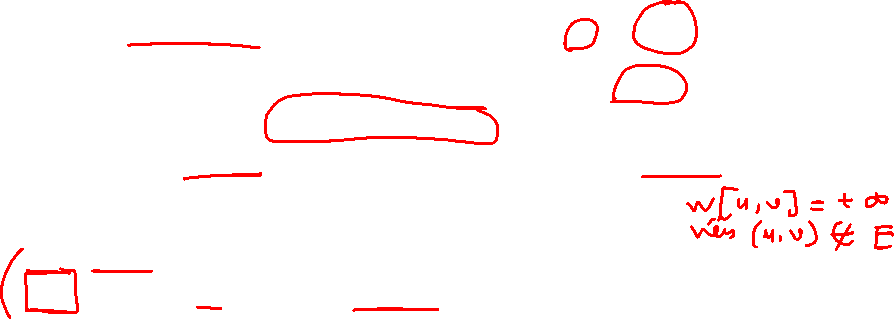 w[u,v] = +∞
nếu (u,v) ∉ E